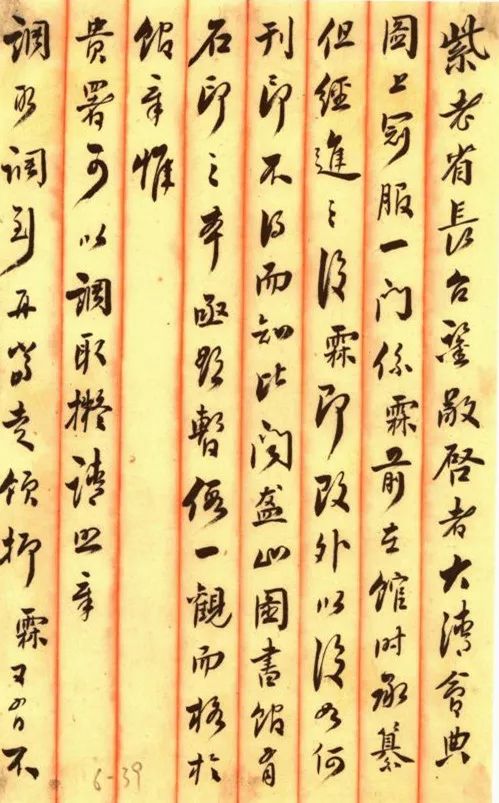 紫老省長台鑒敬啓者大清會典
圖上冠服一門係霖前在館時承纂
但經進之後霖即改外以後如何
刊印不得而知比聞盋山圖書館有
石印之本亟思暫假一觀而格於
館章惟
貴署可以調取擬請照章
調取調到再當走領抑霖又有不
6-39